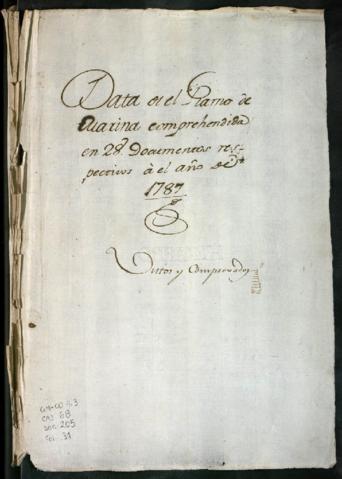 Data en el Ramo de
Marina comprehendida
en 28 Documentos res-
pectivos à el año de
1787
Vistos y Comprovados
CAJ 68
DOC 205
FOL 31